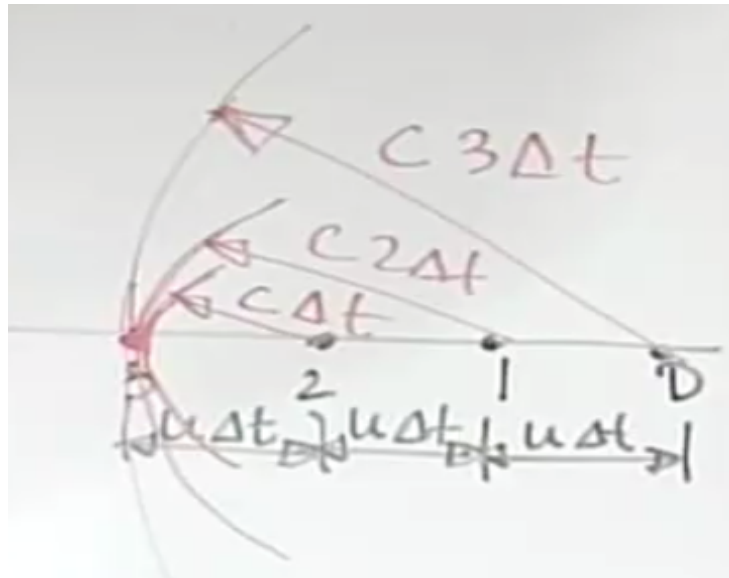 C 3Δt
C 2Δt
CΔt
2 1 D
uΔt uΔt uΔt